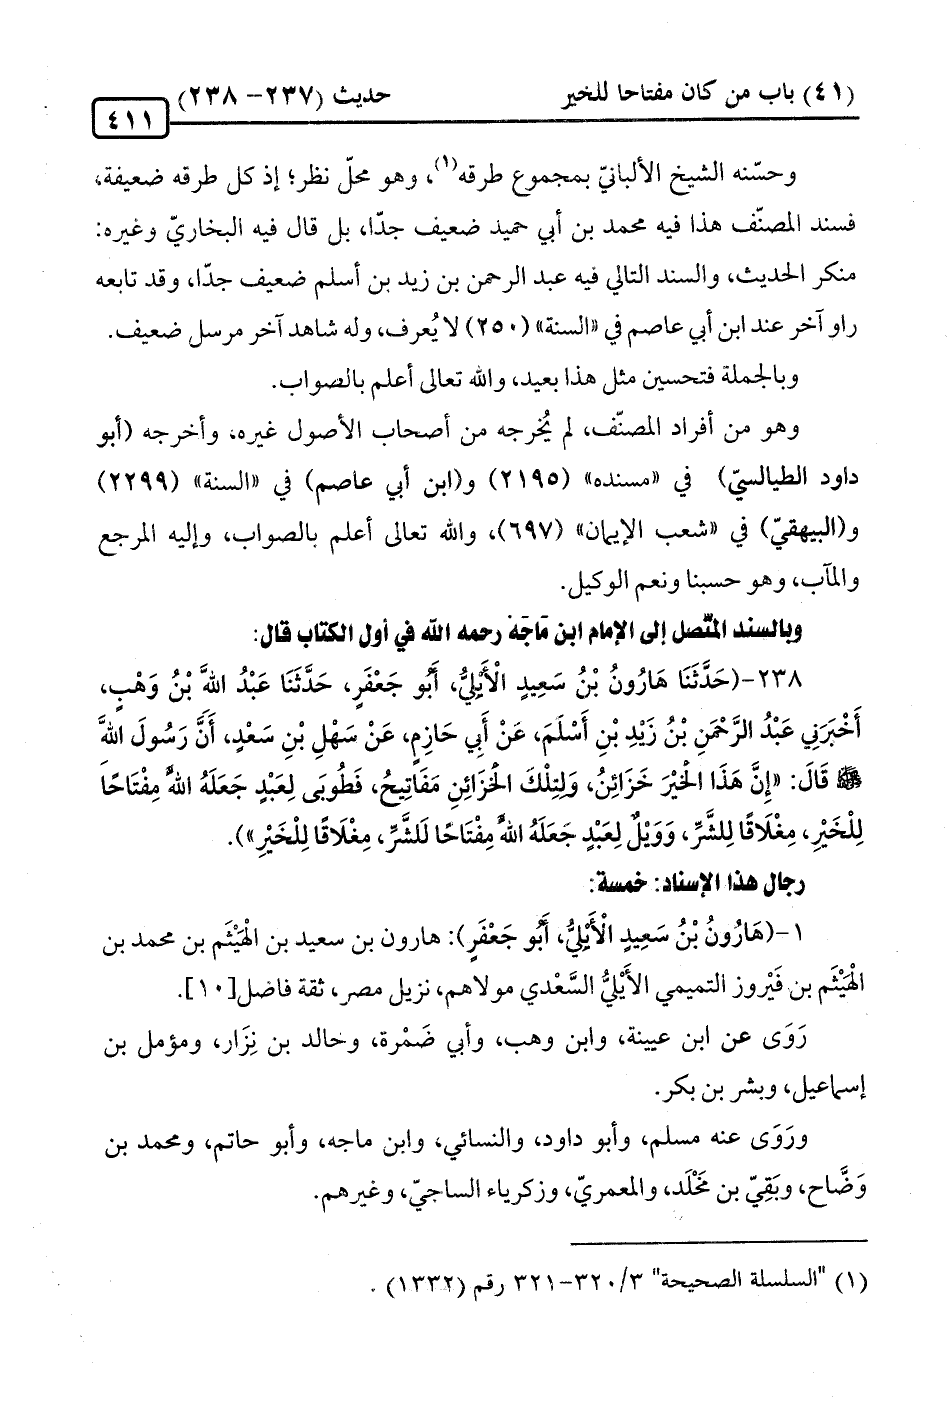 (٤١) باب من كان مفتاحا للخير حديث (٢٣٧- ٢٣٨)
٤١١
وحسّنه الشيخ الألبانيّ بمجموع طرقه(١)، وهو محلّ نظر؛ إذ كل طرقه ضعيفة،
فسند المصنّف هذا فيه محمد بن أبي حميد ضعيف جدّا، بل قال فيه البخاريّ وغيره:
منكر الحديث، والسند التالي فيه عبد الرحمن بن زيد بن أسلم ضعيف جدّا، وقد تابعه
راو آخر عند ابن أبي عاصم في «السنة» (٢٥٠) لا يُعرف، وله شاهد آخر مرسل ضعيف.
وبالجملة فتحسين مثل هذا بعيد، والله تعالى أعلم بالصواب.
وهو من أفراد المصنّف، لم يُخرجه من أصحاب الأصول غيره، وأخرجه (أبو
داود الطيالسيّ) في «مسنده» (٢١٩٥) و(ابن أبي عاصم) في «السنة» (٢٢٩٩)
و(البيهقيّ) في «شعب الإيمان» (٦٩٧)، والله تعالى أعلم بالصواب، وإليه المرجع
والمآب، وهو حسبنا ونعم الوكيل.
وبالسند المتّصل إلى الإمام ابن مَاجَهْ رحمه الله في أول الكتاب قال:
٢٣٨-(حَدَّثَنَا هَارُونُ بْنُ سَعِيدٍ الْأَيْلِيُّ، أَبُو جَعْفَرٍ، حَدَّثَنَا عَبْدُ اللهِ بْنُ وَهْبٍ،
أَخْبَرَنِي عَبْدُ الرَّحْمَنِ بْنُ زَيْدِ بْنِ أَسْلَمَ، عَنْ أَبِي حَازِمٍ، عَنْ سَهْلِ بْنِ سَعْدٍ، أَنَّ رَسُولَ اللهِ
ﷺ قَالَ: «إِنَّ هَذَا الْخَيْرَ خَزَائِنُ، وَلِتِلْكَ الْخَزَائِنِ مَفَاتِيحُ، فَطُوبَى لِعَبْدٍ جَعَلَهُ اللهُ مِفْتَاحًا
لِلْخَيْرِ، مِغْلَاقًا لِلشَّرِّ، وَوَيْلٌ لِعَبْدٍ جَعَلَهُ اللهُ مِفْتَاحًا لَلشَّرِّ، مِغْلَاقًا لِلْخَيْرِ»).
رجال هذا الإسناد: خمسة:
١-(هَارُونُ بْنُ سَعِيدٍ الْأَيْلِيُّ، أَبُو جَعْفَرٍ): هارون بن سعيد بن الهَيْثَم بن محمد بن
الْهَيْثَم بن فَيْروز التميمي الأَيْليُّ السَّعْدي مولاهم، نزيل مصر، ثقة فاضل[١٠].
رَوَى عن ابن عيينة، وابن وهب، وأبي ضَمْرة، وخالد بن نِزَار، ومؤمل بن
إسماعيل، وبشر بن بكر.
ورَوَى عنه مسلم، وأبو داود، والنسائي، وابن ماجه، وأبو حاتم، ومحمد بن
وَضَّاح، وبَقِيّ بن مَخْلَد، والمعمريّ، وزكرياء الساجيّ، وغيرهم.
(١) "السلسلة الصحيحة" ٣/٣٢٠-٣٢١ رقم (١٣٣٢) .